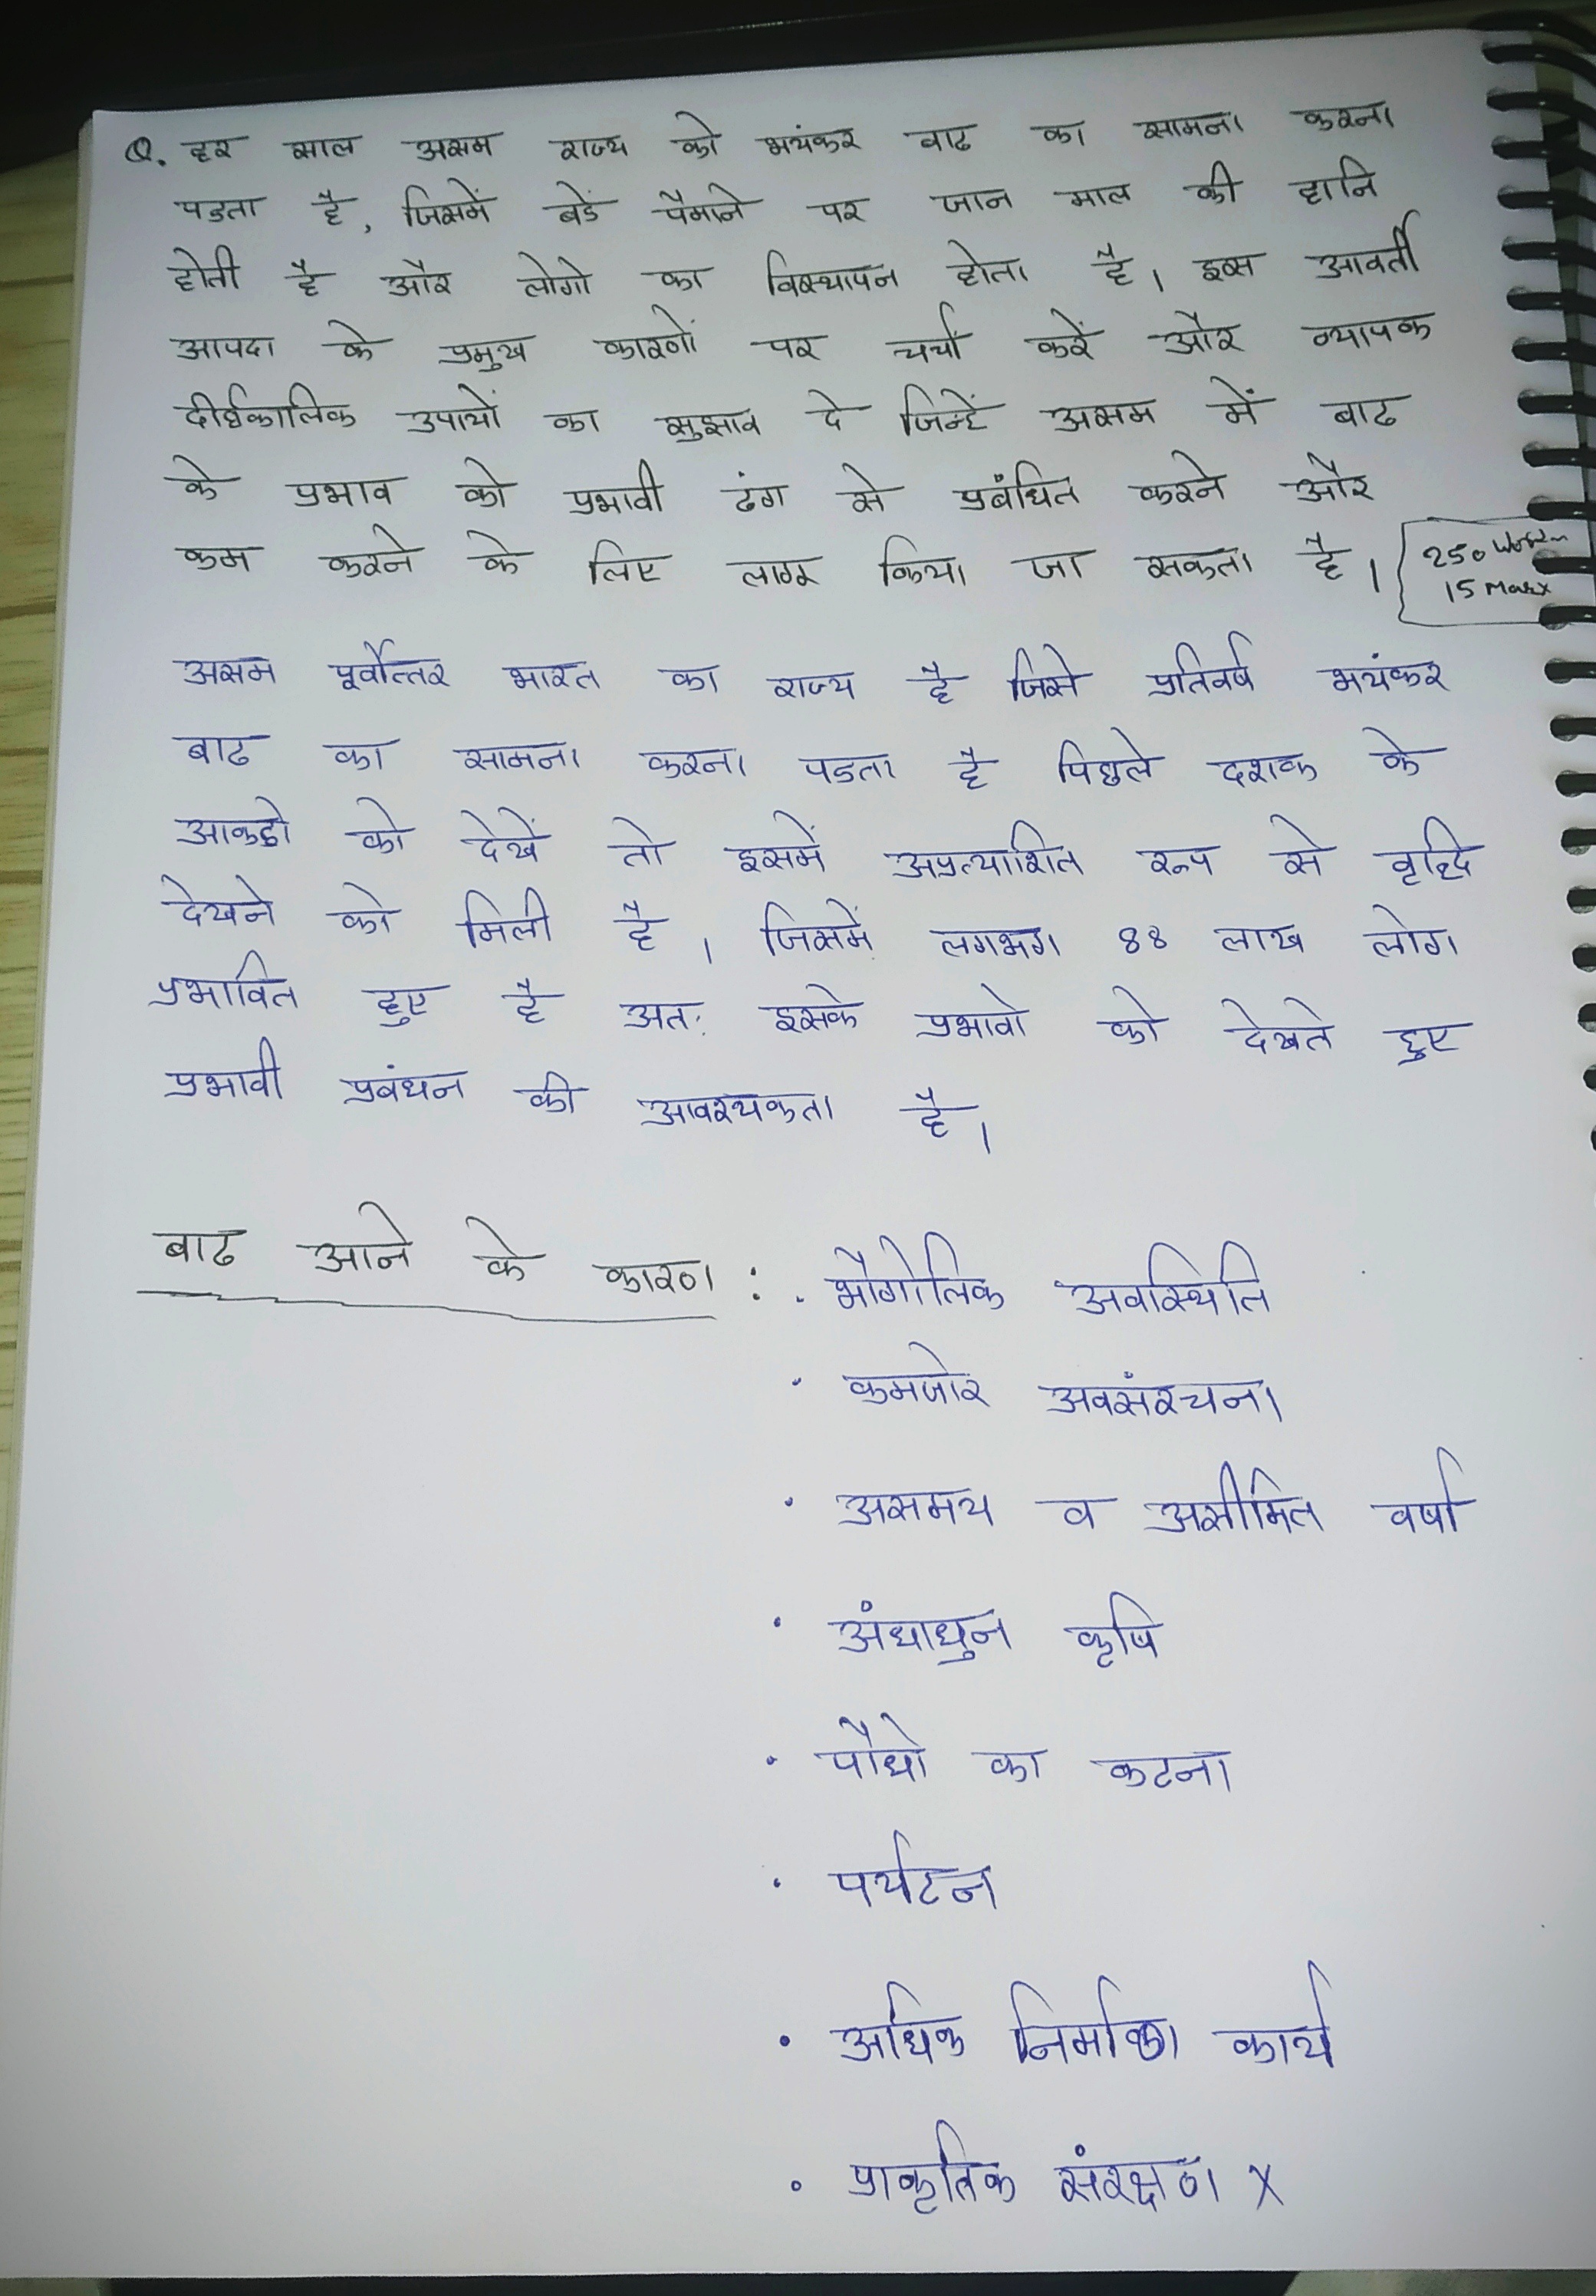 Q. हर साल असम राज्य को भयंकर बाढ का सामना करना
पडता है, जिसमें बडे पैमाने पर जान माल की हानि
होती है और लोगो का विस्थापन होता है। इस आवर्ती
आपदा के प्रमुख कारणों पर चर्चा करें और व्यापक
दीर्घकालिक उपायों का सुझाव दे जिन्हें असम में बाढ
के प्रभाव को प्रभावी ढंग से प्रबंधित करने और
कम करने के लिए लागू किया जा सकता है।
250
15 Marx
असम पूर्वोत्तर भारत का राज्य है जिसे प्रतिवर्ष भयंकर
बाढ का सामना करना पडता है पिछले दशक के
आकडो को देखें तो इसमें अप्रत्याशित रूप से वृद्धि
देखने को मिली है। जिसमें लगभग 88 लाख लोग
प्रभावित हुए है अतः इसके प्रभावो को देखते हुए
प्रभावी प्रबंधन की आवश्यकता है।
बाढ आने के कारण : • भौगोलिक अवस्थिति
• कमजोर अवसंरचना
• असमय व असीमित वर्षा
• अंधाधुन कृषि
• पौधो का कटना
• पर्यटन
• अधिक निर्माण कार्य
• प्राकृतिक संरक्षण X